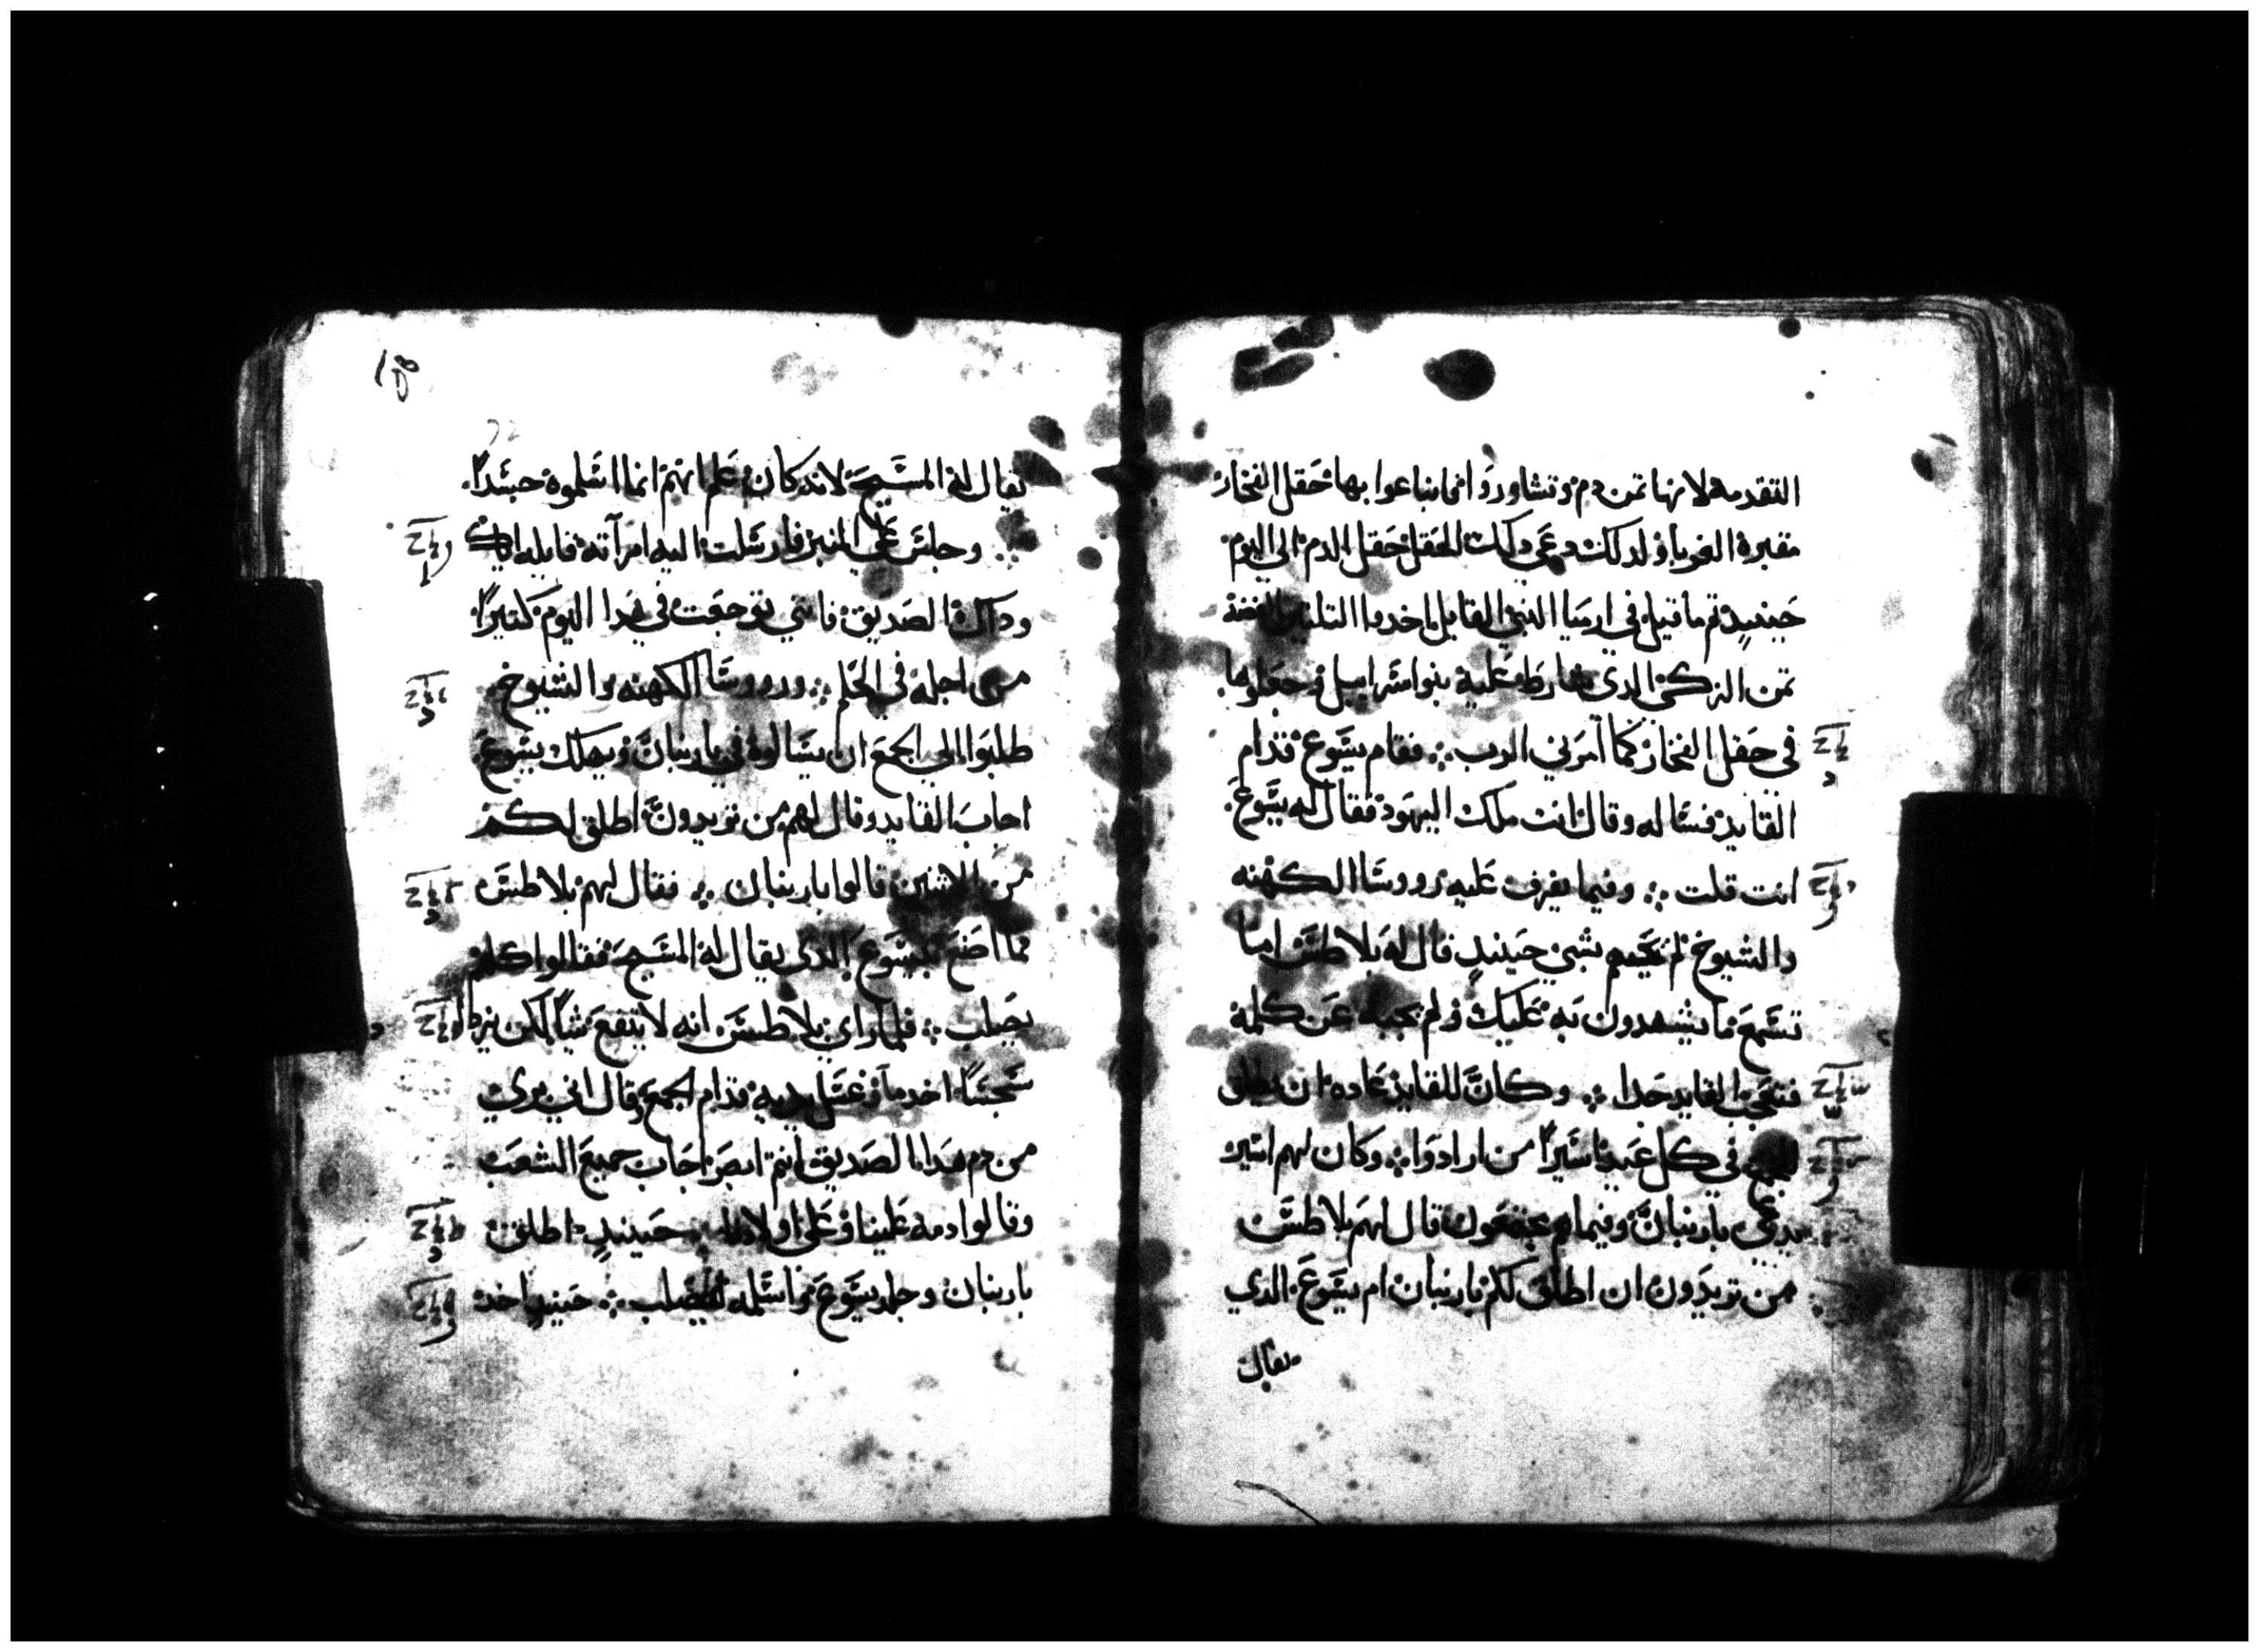 التقدمه لانها تمن دم وتشاوروا انما ابتاعوا بها حقل الفخار
مقبرة الغربا ولدلك دعي دلك الحقل حقل الدم الي اليوم
حينيد تم ما قيل في ارميا النبي القايل اخدوا التلتين الفضه
تمن الزكي الدي شارط عليه بنوا اسراييل وجعلوها
في حقل الفخار كما امرني الرب ⁘ فقام يسوع قدام
القايد فساله وقال انت ملك اليهود فقال له يسوع
انت قلت ⁘ وفيما يقرف عليه رووسا الكهنه
والشيوخ لم يجبهم بشي حينيد قال له بلاطس اما
تسمع ما يشهدون به عليك ولم يجبه عن كلمة
فتعجب القايد جدا ⁘ وكان للقايد عاده ان يطلق
في كل عيد اسيرا من ارادوا ⁘ وكان لهم اسير
يدعي باربنان وفيما هم مجتمعون قال لهم بلاطس
من تريدون ان اطلق لكم باربنان ام يسوع الدي
يقال
يقال له المسيح لانه كان علم انهم انما اسلموه حسدا
وجلس علي المنبر فارسلت اليه امراته قايله اياك
وداك الصديق فانني توجعت في هدا اليوم كتيرا
من اجله في الحلم ⁘ ورووسا الكهنه والشيوخ
طلبوا الي الجمع ان يسالوه في باربنان ويهلك يسوع
اجاب القايد وقال لهم من تريدون اطلق لكم
من الاثنين قالوا باربنان ⁘ فقال لهم بلاطس
فما اصنع بيسوع الدي يقال له المسيح فقالوا كلهم
يصلب ⁘ فلما راي بلاطس انه لا ينتفع شيا لكن يزداد
سجسا اخد ما وغسل يديه قدام الجمع وقال اني بري
من دم هدا الصديق انتم ابصر اجاب جميع الشعب
وقالوا دمه علينا وعلي اولادنا ⁘ حينيد اطلق
باربنان وجلد يسوع واسلمه للصلب ⁘ حينيد اخد